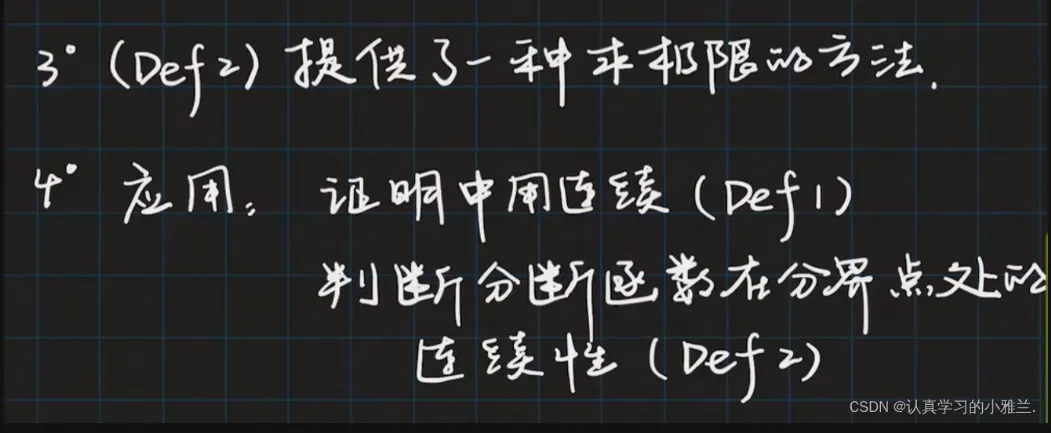 3° (Def 2) 提供了一种求极限的方法.
4° 应用: 证明中用连续 (Def 1)
判断分断函数在分界点处的
连续性 (Def 2)
CSDN @认真学习的小雅兰.